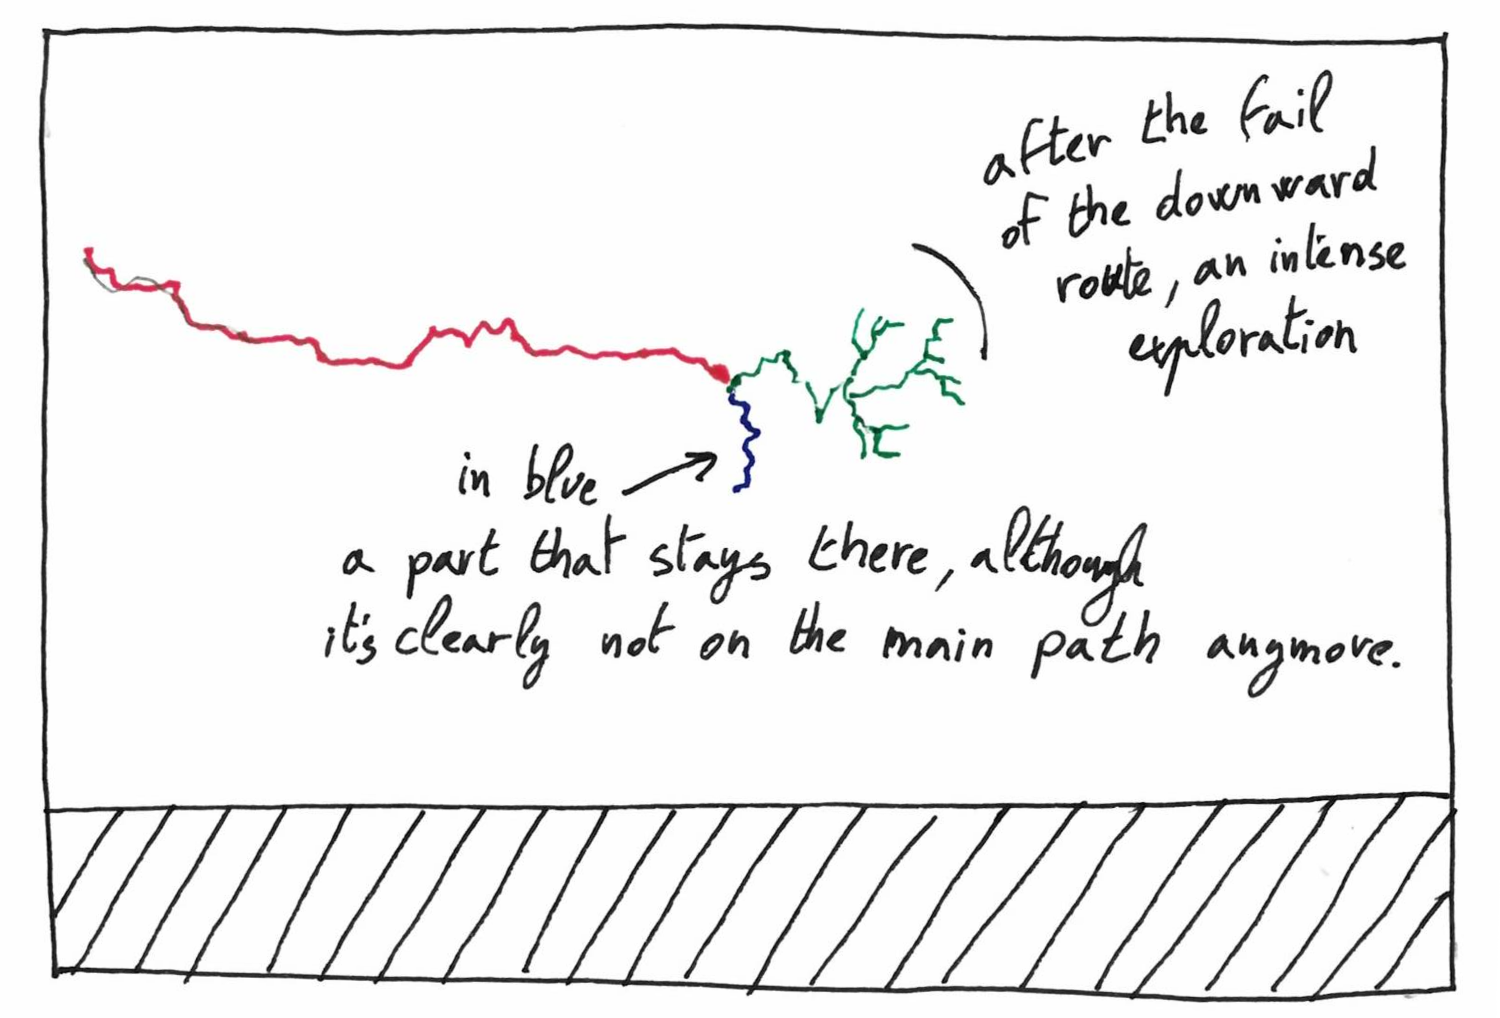 after the fail
of the downward
route, an intense
exploration
in blue
a part that stays there, although
it's clearly not on the main path anymore.